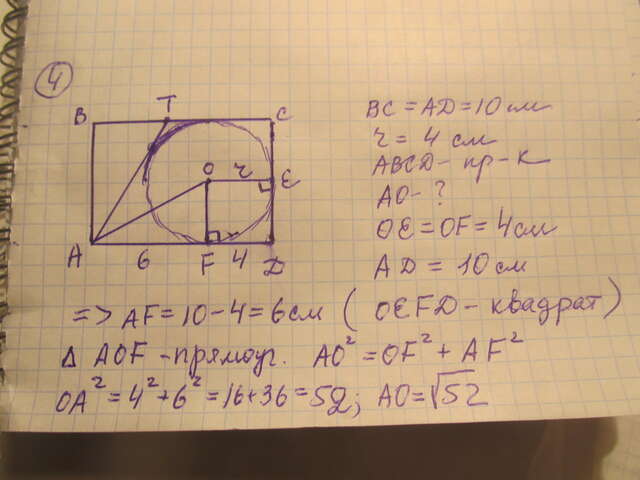 4
B T C
O r E
A 6 F 4 D
BC = AD = 10 см
r = 4 см
ABCD - пр-к
AO - ?
OE = OF = 4см
AD = 10 см
=> AF = 10 - 4 = 6 см ( OEFD - квадрат)
Δ AOF - прямоуг. AO² = OF² + AF²
OA² = 4² + 6² = 16 + 36 = 52; AO = √52